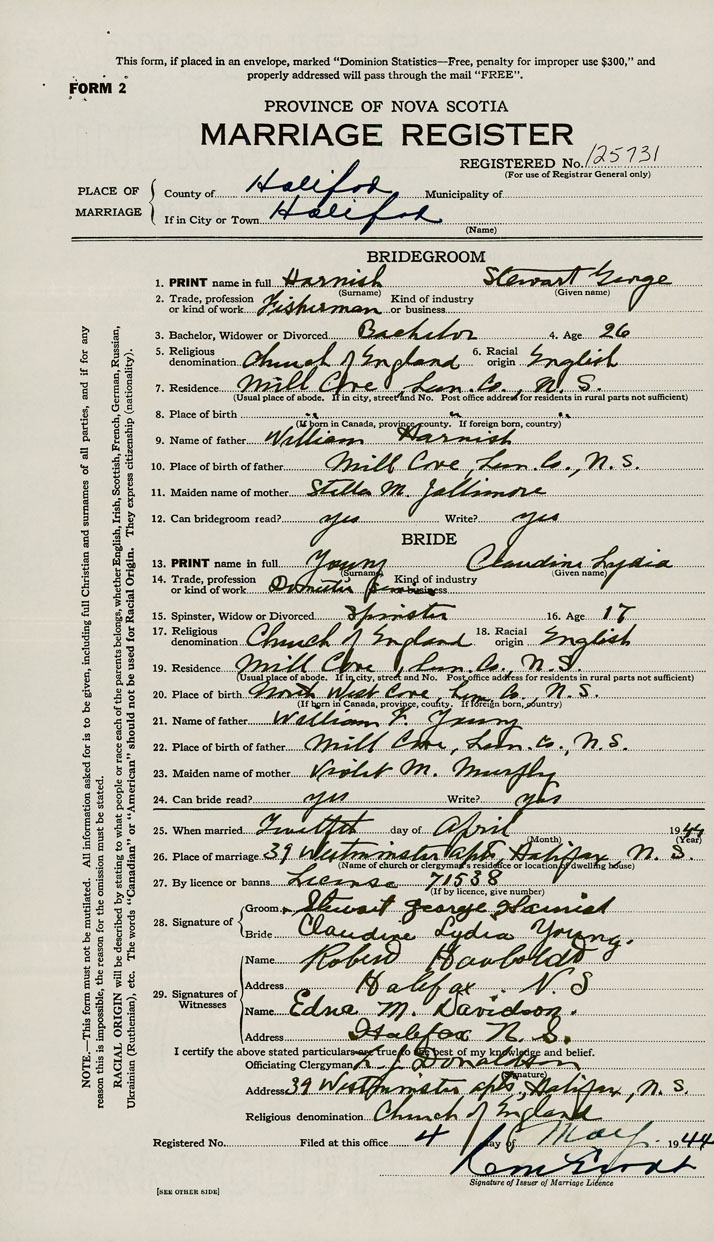 This form, if placed in an envelope, marked "Dominion Statistics—Free, penalty for improper use $300," and
properly addressed will pass through the mail "FREE".
FORM 2
PROVINCE OF NOVA SCOTIA
MARRIAGE REGISTER
REGISTERED No. 125731
(For use of Registrar General only)
PLACE OF MARRIAGE
County of Halifax Municipality of
If in City or Town Halifax
(Name)
BRIDEGROOM
1. PRINT name in full Harnish Stewart George
(Surname) (Given name)
2. Trade, profession or kind of work Fisherman Kind of industry or business
3. Bachelor, Widower or Divorced Bachelor 4. Age 26
5. Religious denomination Church of England 6. Racial origin English
7. Residence Mill Cove, Lun. Co., N. S.
(Usual place of abode. If in city, street and No. Post office address for residents in rural parts not sufficient)
8. Place of birth " " "
(If born in Canada, province, county. If foreign born, country)
9. Name of father William Harnish
10. Place of birth of father Mill Cove, Lun. Co., N. S.
11. Maiden name of mother Stella M. Jollimore
12. Can bridegroom read? yes Write? yes
BRIDE
13. PRINT name in full Young Claudine Lydia
(Surname) (Given name)
14. Trade, profession or kind of work Domestic Kind of industry or business
15. Spinster, Widow or Divorced Spinster 16. Age 17
17. Religious denomination Church of England 18. Racial origin English
19. Residence Mill Cove, Lun. Co., N. S.
(Usual place of abode. If in city, street and No. Post office address for residents in rural parts not sufficient)
20. Place of birth North West Cove, Lun. Co., N. S.
(If born in Canada, province, county. If foreign born, country)
21. Name of father William F. Young
22. Place of birth of father Mill Cove, Lun. Co., N. S.
23. Maiden name of mother Violet M. Murphy
24. Can bride read? yes Write? yes
25. When married Twelfth day of April 1944
(Month) (Year)
26. Place of marriage 39 Westminster apts, Halifax, N. S.
(Name of church or clergyman's residence or location of dwelling house)
27. By licence or banns License 71538
(If by licence, give number)
28. Signature of
Groom Stewart George Harnish
Bride Claudine Lydia Young.
29. Signatures of Witnesses
Name Robert
Address Halifax N. S
Name Edna M. Davidson.
Address Halifax N. S.
I certify the above stated particulars are true to the best of my knowledge and belief.
Officiating Clergyman L. J. Donaldson
(Signature)
Address 39 Westminster apts, Halifax, N. S.
Religious denomination Church of England
Registered No. Filed at this office 4 day of May 1944
Signature of Issuer of Marriage Licence
[SEE OTHER SIDE]
NOTE.—This form must not be mutilated. All information asked for is to be given, including full Christian and surnames of all parties, and if for any
reason this is impossible, the reason for the omission must be stated.
RACIAL ORIGIN will be described by stating to what people or race each of the parents belongs, whether English, Irish, Scottish, French, German, Russian,
Ukrainian (Ruthenian), etc. The words "Canadian" or "American" should not be used for Racial Origin. They express citizenship (nationality).